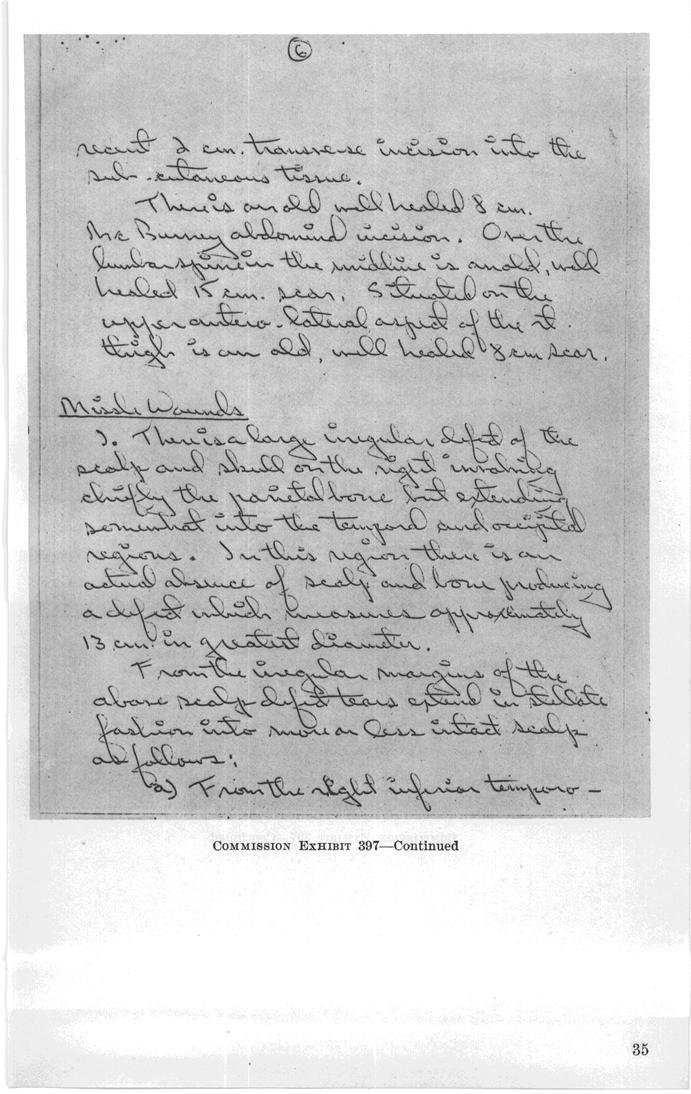 6
recent 2 cm. transverse incision into the
sub-cutaneous tissue.
There is an old well healed 8 cm.
Mc Burney abdominal incision. Over the
lumbar spine in the midline is an old, well
healed 15 cm. scar. Situated on the
upper antero-lateral aspect of the rt.
thigh is an old, well healed 8 cm scar.
Missle Wounds
1. There is a large irregular defect of the
scalp and skull on the right involving
chiefly the parietal bone but extending
somewhat into the temporal and occipital
regions. In this region there is an
actual absence of scalp and bone producing
a defect which measures approximately
13 cm. in greatest diameter.
From the irregular margins of the
above scalp defect tears extend in stellate
fashion into more or less intact scalp
as follows:
a) From the right inferior temporo-
COMMISSION EXHIBIT 397—Continued
35